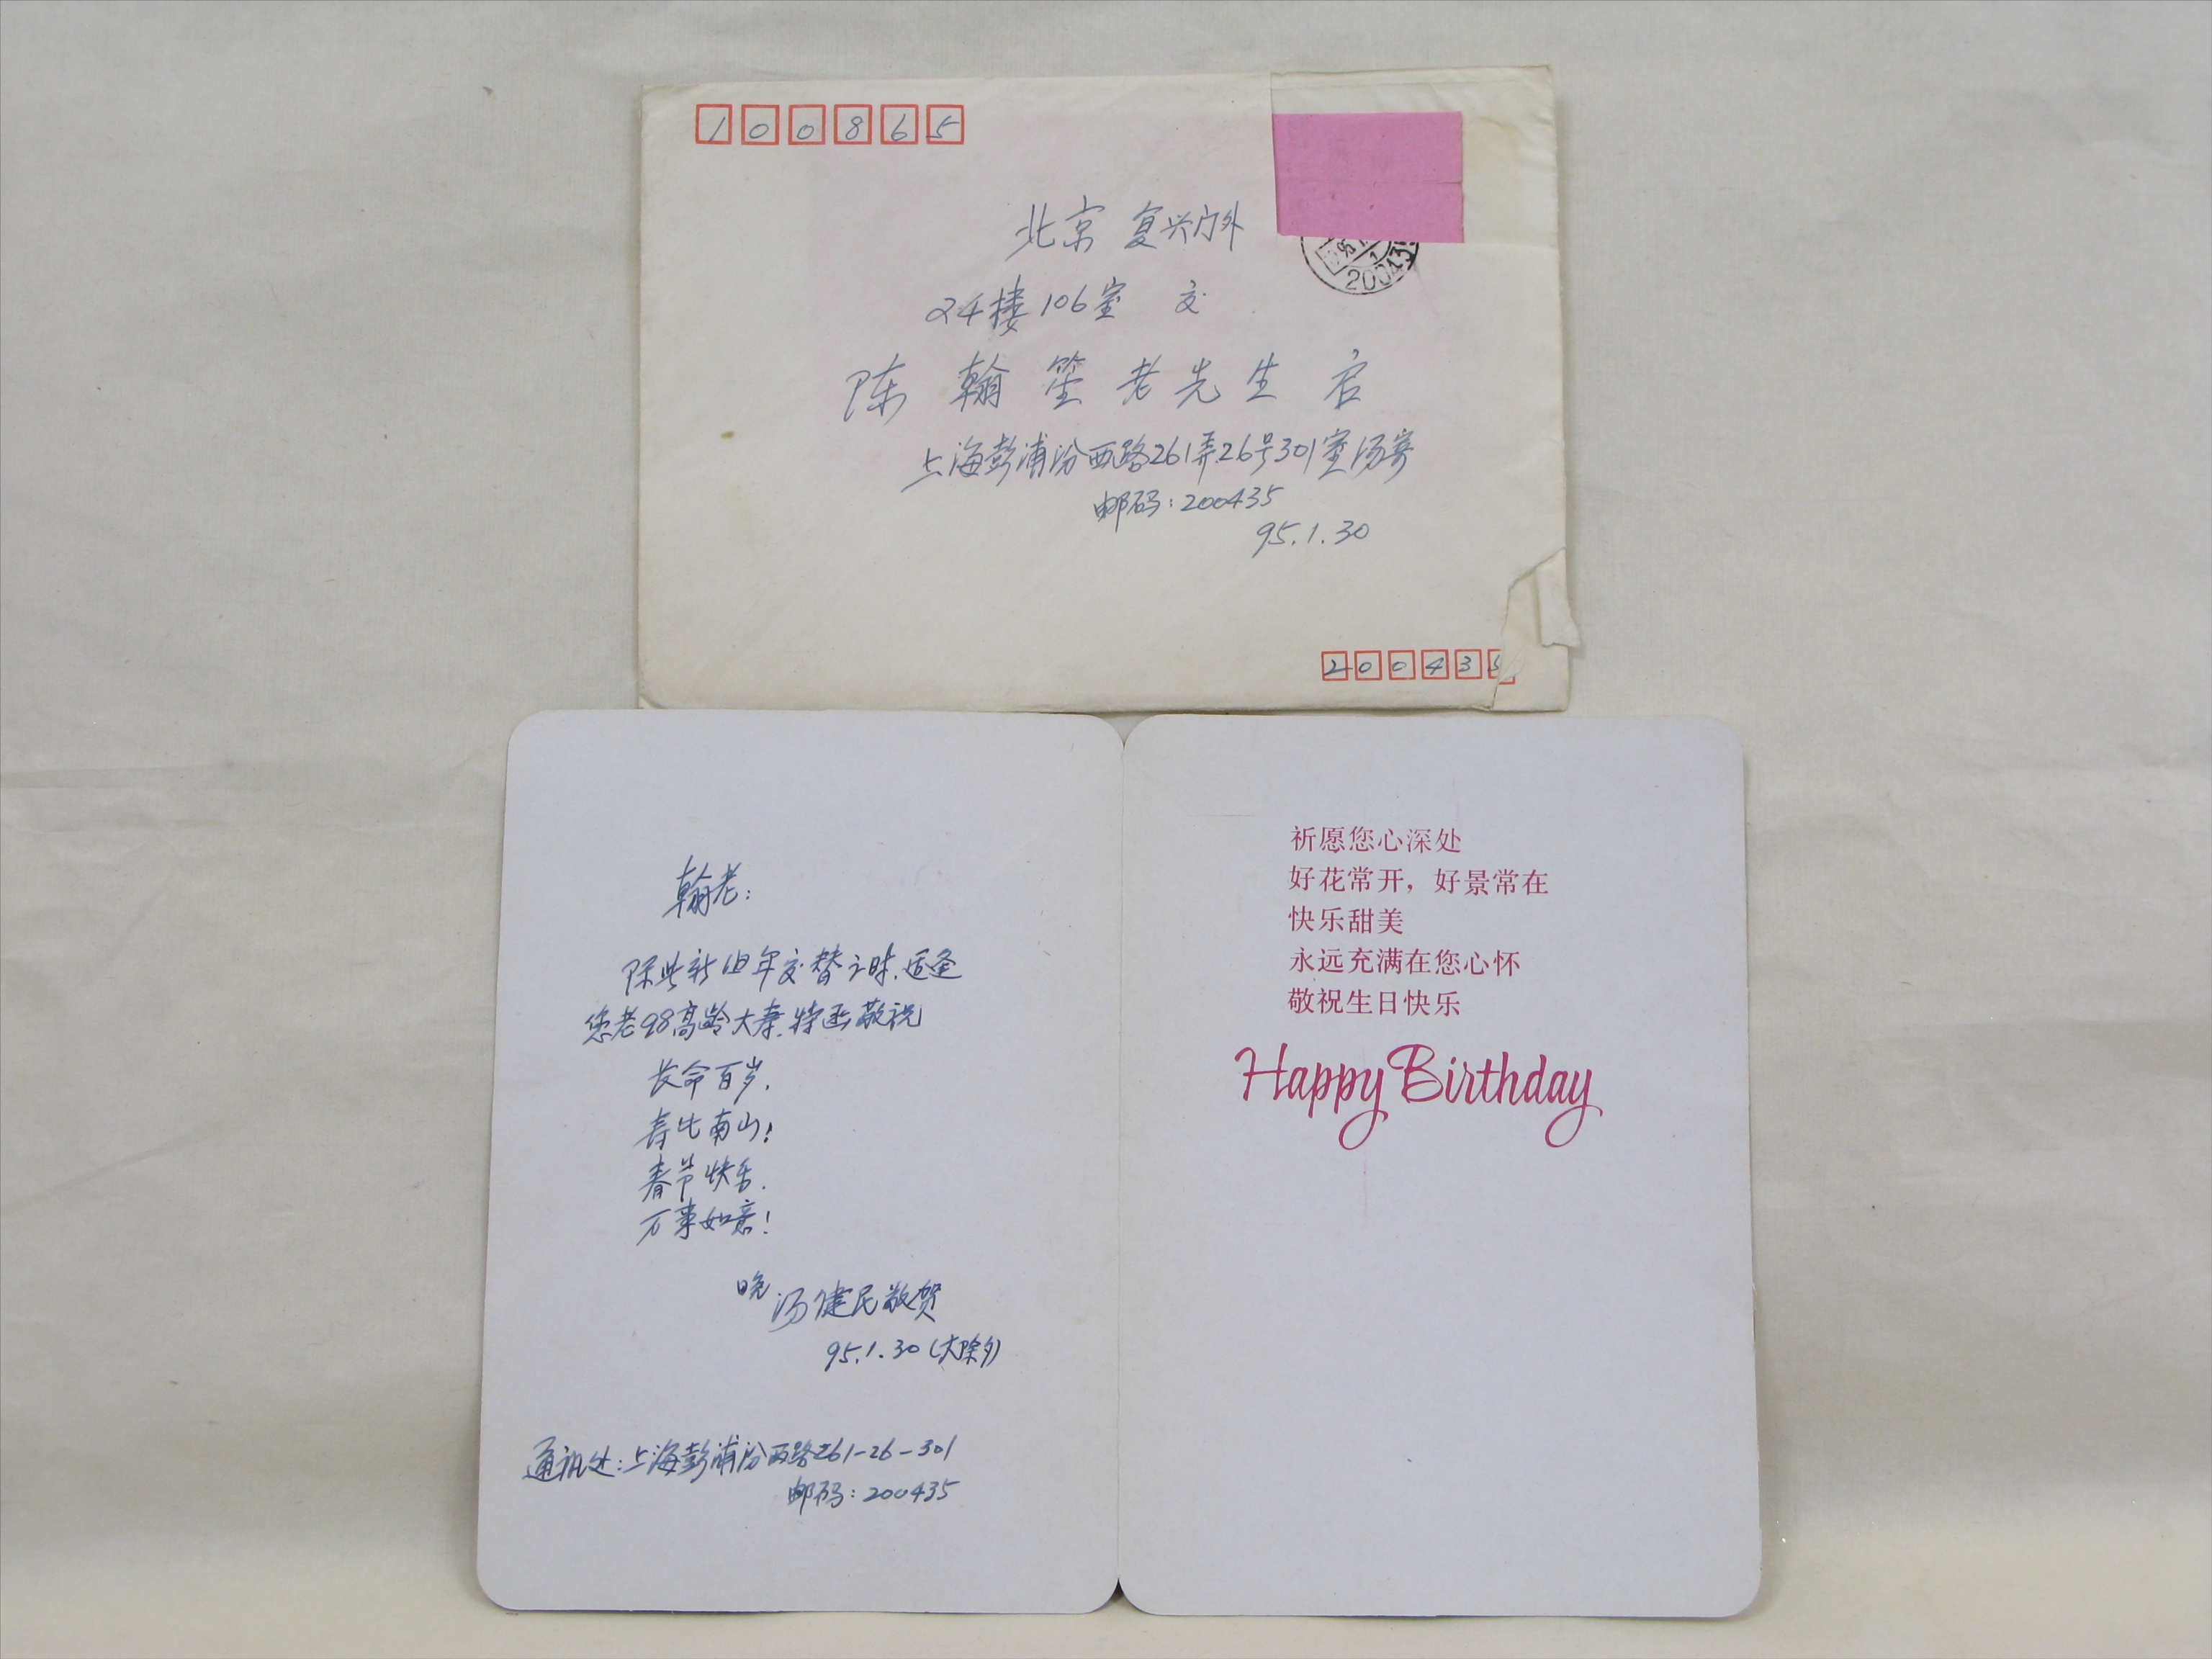 100865
北京 复兴门外
24楼106室 交
陈翰笙老先生 启
上海彭浦汾西路261弄26号301室汤寄
邮码:200435
95.1.30
200435
200435
翰老:
际此新旧年交替之时,适逢
您老98高龄大寿,特函敬祝
长命百岁,
寿比南山!
春节快乐,
万事如意!
晚 汤健民敬贺
95.1.30(大除夕)
通讯处:上海彭浦汾西路261-26-301
邮码:200435
祈愿您心深处
好花常开,好景常在
快乐甜美
永远充满在您心怀
敬祝生日快乐
Happy Birthday